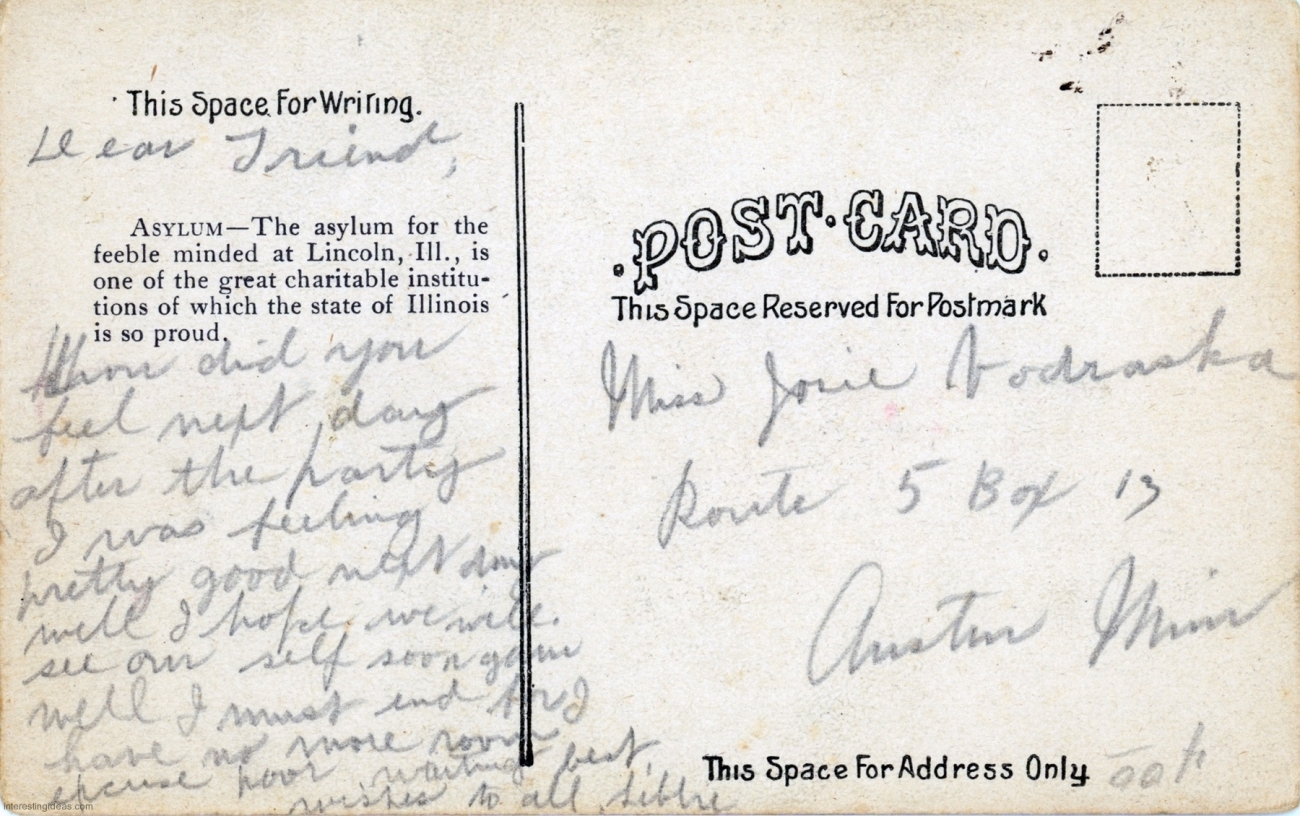 This Space For Writing.
Dear Friend,
ASYLUM—The asylum for the
feeble minded at Lincoln, Ill., is
one of the great charitable institu-
tions of which the state of Illinois
is so proud.
did you
feel next day
after the party
I was feeling
pretty good next day
well I hope we will.
see our self soon
well I must end for I
have no more room
excuse poor writing best
wishes to all
POST·CARD.
This Space Reserved For Postmark
Miss Josie Vodraska
Route 5 Box 13
Austin Minn
This Space For Address Only
interestingideas.com